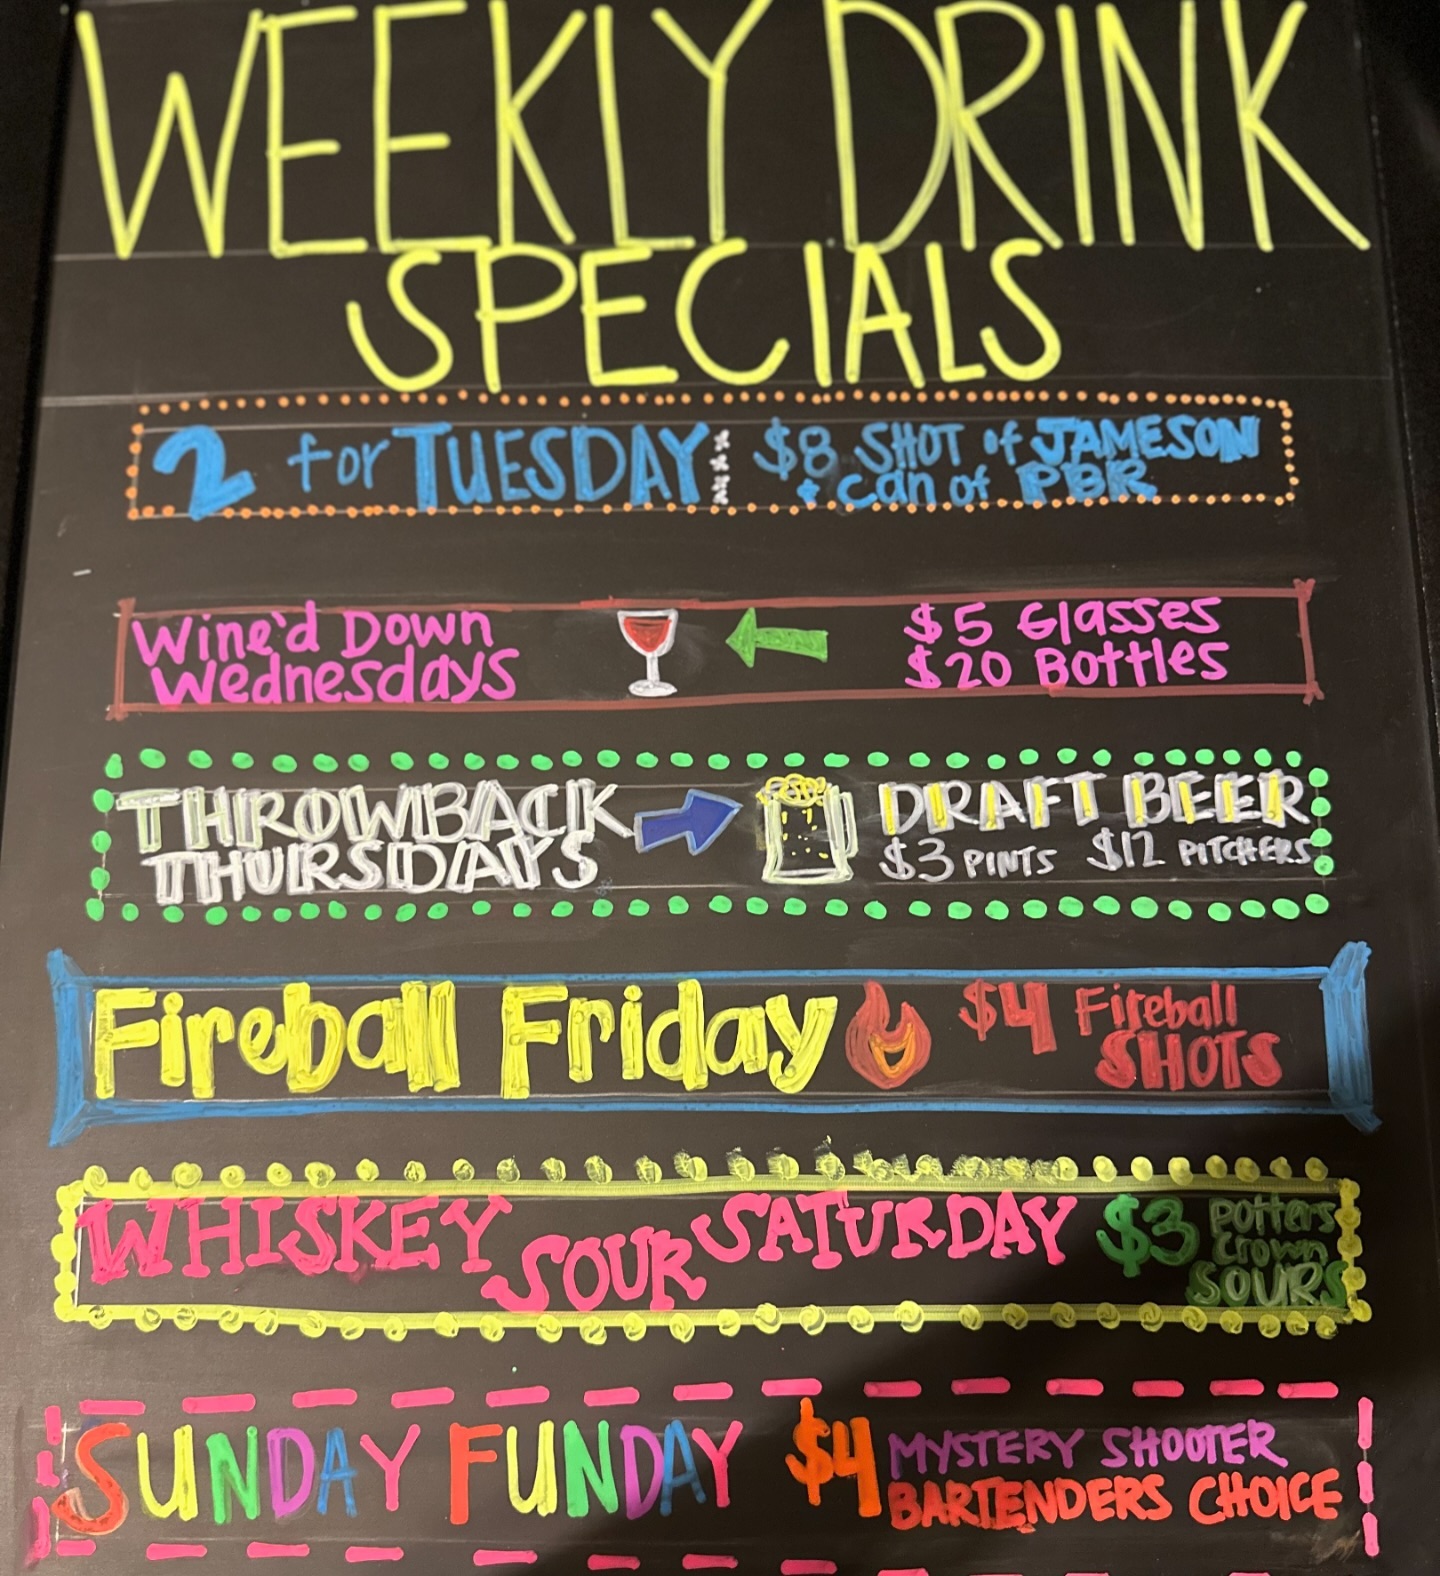 WEEKLY DRINK
SPECIALS
2 for TUESDAY
$8 SHOT of JAMESON
+ can of PBR
Wine'd Down
Wednesdays
$5 Glasses
$20 Bottles
THROWBACK
THURSDAYS
DRAFT BEER
$3 PINTS $12 PITCHERS
Fireball Friday
$4 Fireball
SHOTS
WHISKEY SOUR SATURDAY
$3 potters
crown
SOURS
SUNDAY FUNDAY
$4 MYSTERY SHOOTER
BARTENDERS CHOICE